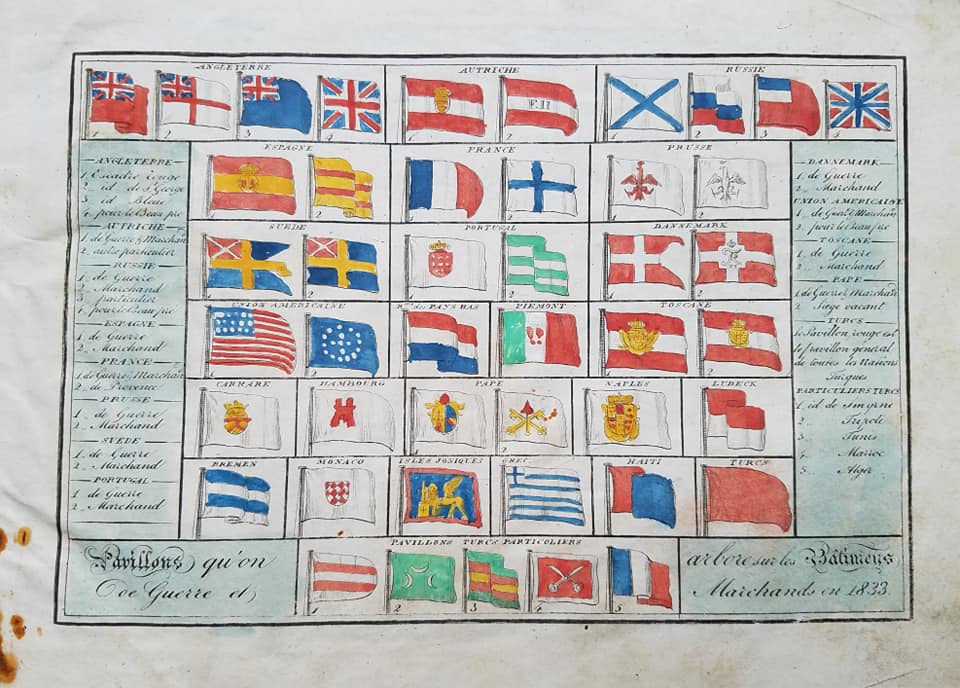 ANGLETERRE
AUTRICHE
RUSSIE
1 2 3 4
1 2
1 2 3 4
ESPAGNE
FRANCE
PRUSSE
1 2
1 2
1 2
SUEDE
PORTUGAL
DANNEMARK
1 2
1 2
1 2
UNION AMERICAINE
DES PAYS BAS
PIEMONT
TOSCANE
1 2
1 2
CARRARE
HAMBOURG
PAPE
NAPLES
LUBECK
1 2
BREMEN
MONACO
ISLES JONIQUES
GREC
HAITI
TURCS
PAVILLONS TURCS PARTICULIERS
1 2 3 4 5
ANGLETERRE
1 Escadre rouge
2 id de St George
3 id Bleue
4 pour le Beau pré
AUTRICHE
1 de Guerre & Marchan
2 autre particulier
RUSSIE
1 de Guerre
2 Marchand
3 particulier
4 pour le Beau pré
ESPAGNE
1 de Guerre
2 Marchand
FRANCE
1 de Guerre & Marchan
2 de Provence
PRUSSE
1 de Guerre
2 Marchand
SUEDE
1 de Guerre
2 Marchand
PORTUGAL
1 de Guerre
2 Marchand
DANNEMARK
1 de Guerre
2 Marchand
UNION AMERICAINE
1 de Guer & Marchan
2 pour le beau pré
TOSCANE
1 de Guerre
2 Marchand
PAPE
1 de Guerre & Marchan
2 Siège vacant
TURCS
le Pavillon rouge est
le pavillon general
de toutes les Nations
Turques
PARTICULIERS TURCS
1 id de Smyrne
2 Tripole
3 Tunis
4 Marroc
5 Alger
Pavillons qu'on
de Guerre et
arbore sur les Bâtimens
Marchands en 1833.